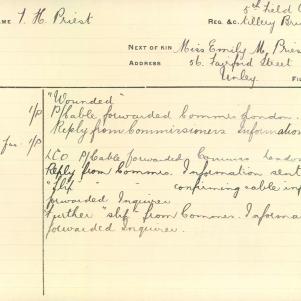 AME T. H. Priest
5th Field
REG. &C.
NEXT OF KIN Miss Emily M. Pries
ADDRESS 56. Fairford Street
Unley
"Wounded"
1/P P/Cable forwarded Commrs London.
Reply from Commissioners Information
1/P LCO P/Cable forwarded Commrs London
Reply from Commrs. Information sent
"Slip" " " confirming cable inf
forwarded Inquirer
Further "slip" from Commrs. Informa
forwarded Inquirer.